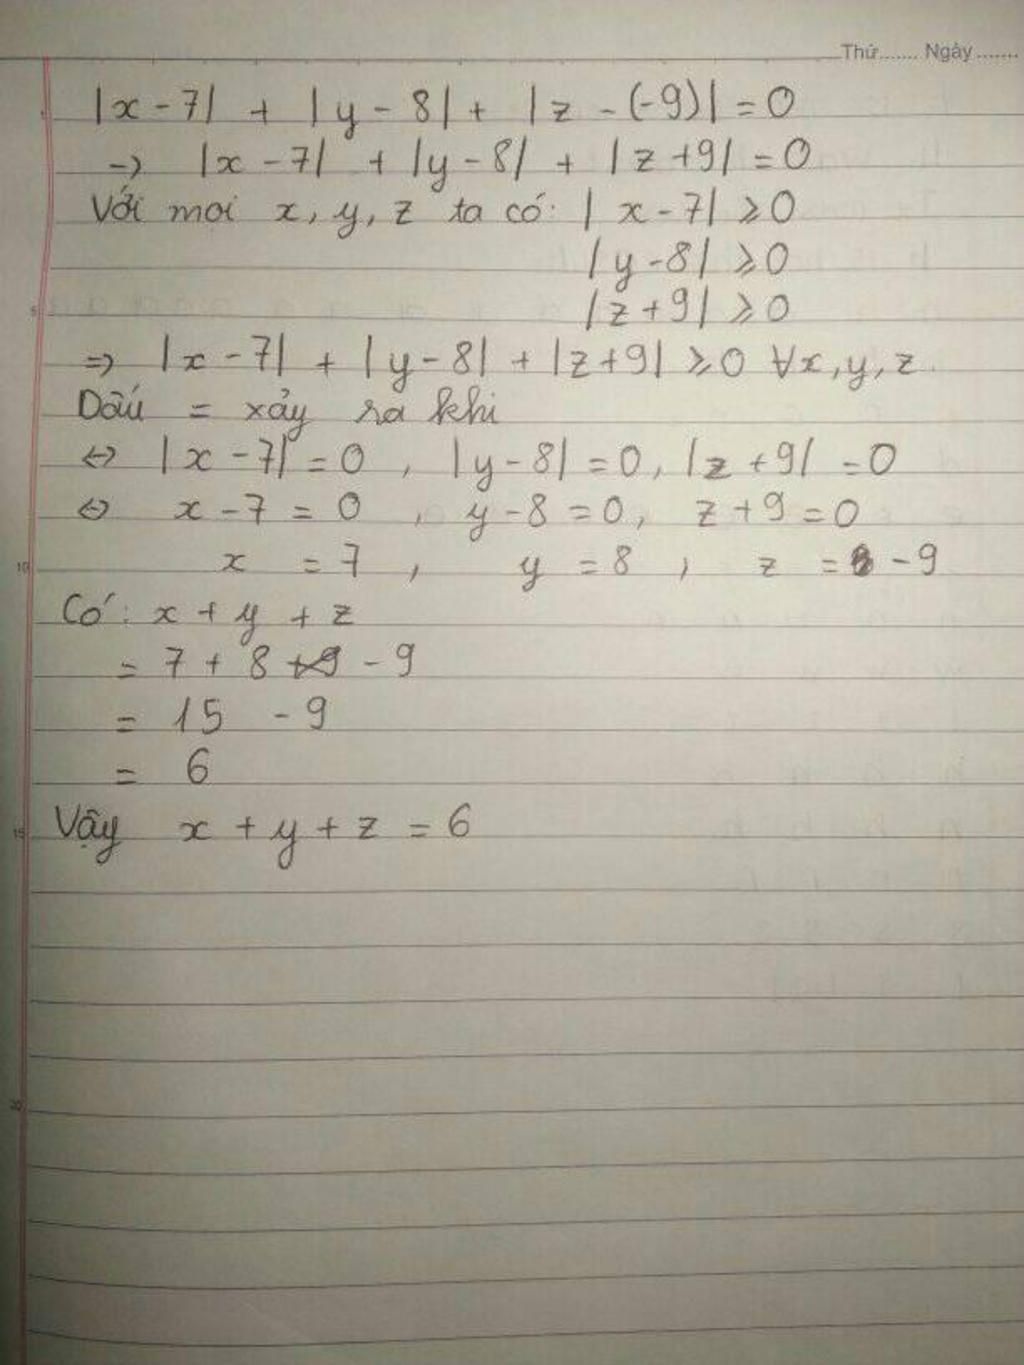 Thứ....... Ngày.......
|x - 7| + |y - 8| + |z - (-9)| = 0
→ |x - 7| + |y - 8| + |z + 9| = 0
Với mọi x, y, z ta có: |x - 7| ⩾ 0
|y - 8| ⩾ 0
5
|z + 9| ⩾ 0
⇒ |x - 7| + |y - 8| + |z + 9| ⩾ 0 ∀x, y, z.
Dấu = xảy ra khi
⇔ |x - 7| = 0 , |y - 8| = 0, |z + 9| = 0
⇔ x - 7 = 0 , y - 8 = 0, z + 9 = 0
10
x = 7 , y = 8 , z = - 9
Có: x + y + z
= 7 + 8 - 9
= 15 - 9
= 6
15
Vậy x + y + z = 6
20